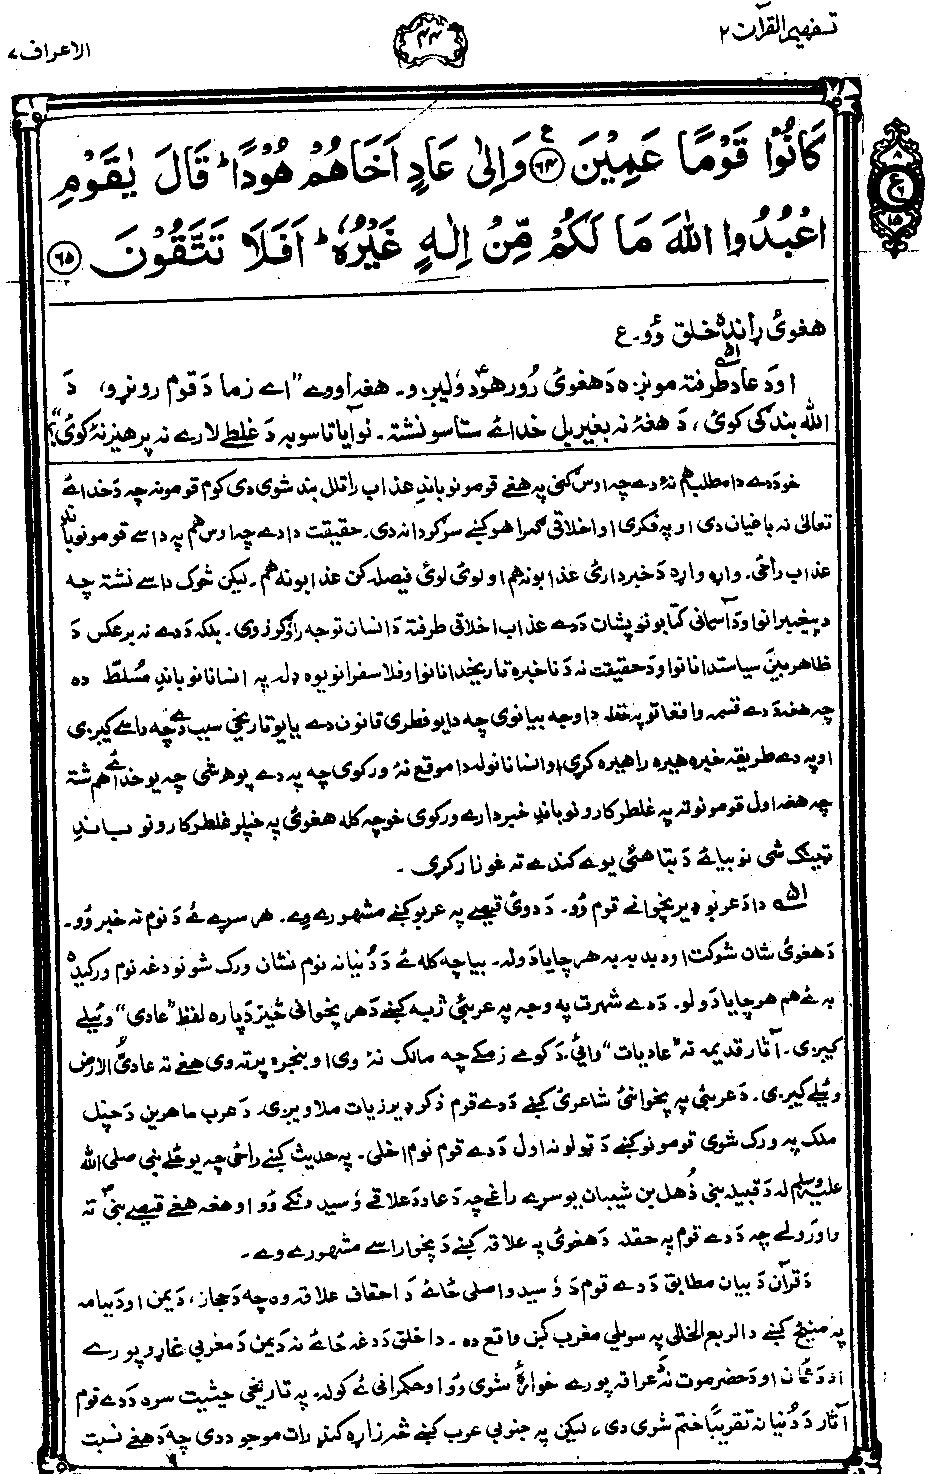 تفهيم القرآن ٢
٤٤
الاعراف ٧
كَانُوْا قَوْمًا عَمِيْنَ ﴿٦٤﴾ وَاِلٰى عَادٍ اَخَاهُمْ هُوْدًا ؕ قَالَ يٰقَوْمِ
اعْبُدُوا اللّٰهَ مَا لَكُمْ مِّنْ اِلٰهٍ غَيْرُهٗ ؕ اَفَلَا تَتَّقُوْنَ ﴿٦٥﴾
هغوئ ړانده خلق وُو۔ ع
او دَ عاد طرفته مونږه دَ هغوئ رُور هودؑ وليږو۔ هغه اووے "اے زما دَ قوم رونړو، دَ
الله بندګی کوئ، دَ هغۀ نه بغیر بل خدائے ستاسو نشته۔ نو آیا تاسو به دَ غلطے لارے نه پرهیز نۀ کوئ؟"
خو دَدے دا مطلب هم نۀ دے چه اوس کښی په هغے قومونو باندِ عذاب راتلل بند شوی دی کوم قومونه چه دَ خدائے
تعالیٰ نه باغیان دی او په فکری او اخلاقی ګمراهو کښے سرګردانه دی۔ حقیقت دا دے چه اوس هم په داسے قومونو باندِ
عذاب راځی۔ واړه واړه دَ خبرداری عذابونه هم او لوئ لوئ فیصله کن عذابونه هم۔ لیکن څوک داسے نشته چه
دَ پیغمبرانو او دَ آسمانی کتابونو پشان دَدے عذاب اخلاقی طرفته دَ انسان توجه راوګرزوی۔ بلکه دَدے نه برعکس دَ
ظاهر بین سیاستدانانو او دَ حقیقت نه دَ ناخبره تاریخدانانو او فلاسفرانو یوه ډله په انسانانو باندِ مُسلّط ده
چه هغه دَدے قسمه واقعاتو په حقله دا وجه بیانوی چه دا یو فطری قانون دے یا یو تاریخی سبب دے چه داسے کیږی
او په دے طریقه خیره هیره راهیره کړی او انسانانو له دا موقع نۀ ورکوی چه په دے پوهه شی چه یو خدائے هم شته
چه هغه اول قومونو ته په غلطو کارونو باندِ خبردارے ورکوی خو چه کله هغوئ په خپلو غلطو کارونو باندِ
ټینګ شی نو بیائے دَ تباهئ یوے کندے ته غوزار کړی۔
دا دَ عربو ډیر پخوانے قوم وُو۔ دَ دوئ قیصے په عربو کښے مشهورے وے۔ هر سړے ئے دَ نوم نه خبر وُو۔
دَ هغوئ شان شوکت او دبدبه په هر چا یادوله۔ بیا چه کله ئے دَ دُنیا نه نوم نشان ورک شو نو دغه نوم ورکیدۀ
به ئے هم هر چا یادولو۔ دَدے شهرت په وجه په عربئ ژبه کښے دَ هر پخوانی څیز دَپاره لفظ "عادی" وئیلے
کیږی۔ آثار قدیمه ته "عادیات" وائی۔ دَ کومے زمکے چه مالک نۀ وی او بنجره پرته وی هغے ته عادیُّ الارض
وئیلے کیږی۔ دَ عربئ په پخوانئ شاعرئ کښے دَدے قوم ذکر ډیر زیات ملاویږی۔ دَ عرب ماهرین دَ خپل
ملک په ورک شوی قومونو کښے دَ ټولو نه اول دَدے قوم نوم اخلی۔ په حدیث کښے راځی چه یو ځلے نبی صلی الله
علیه وسلم له دَ قبیله بنی ذُهل بن شیبان یو سړے راغے چه دَ عاد دَ علاقے وسیدونکے وُو او هغه هغے قیصے نبیؐ ته
واورولے چه دَدے قوم په حقله دَ هغوئ په علاقه کښے دَ پخوا راسے مشهورے وے۔
دَ قرآن دَ بیان مطابق دَدے قوم دَ وُسیدو اصلی ځائے دَ احقاف علاقه وه چه دَ حجاز، دَ یمن او دَ یمامه
په منځ کښے دَ الربع الخالی په سویلی مغرب کښی واقع ده۔ دا خلق دَ دغه ځائے نه دَ یمن دَ مغربی غاړو پورے
او دَ عُمان او دَ حضرموت نه دَ عراقه پورے خوارۀ شوی وُو او حکمرانی ئے کوله۔ په تاریخی حیثیت سره دَدے قوم
آثار دَ دُنیا نه تقریباً ختم شوی دی، لیکن په جنوبی عرب کښے څه زاړۀ کنډرات موجود دی چه دَ هغے نسبت